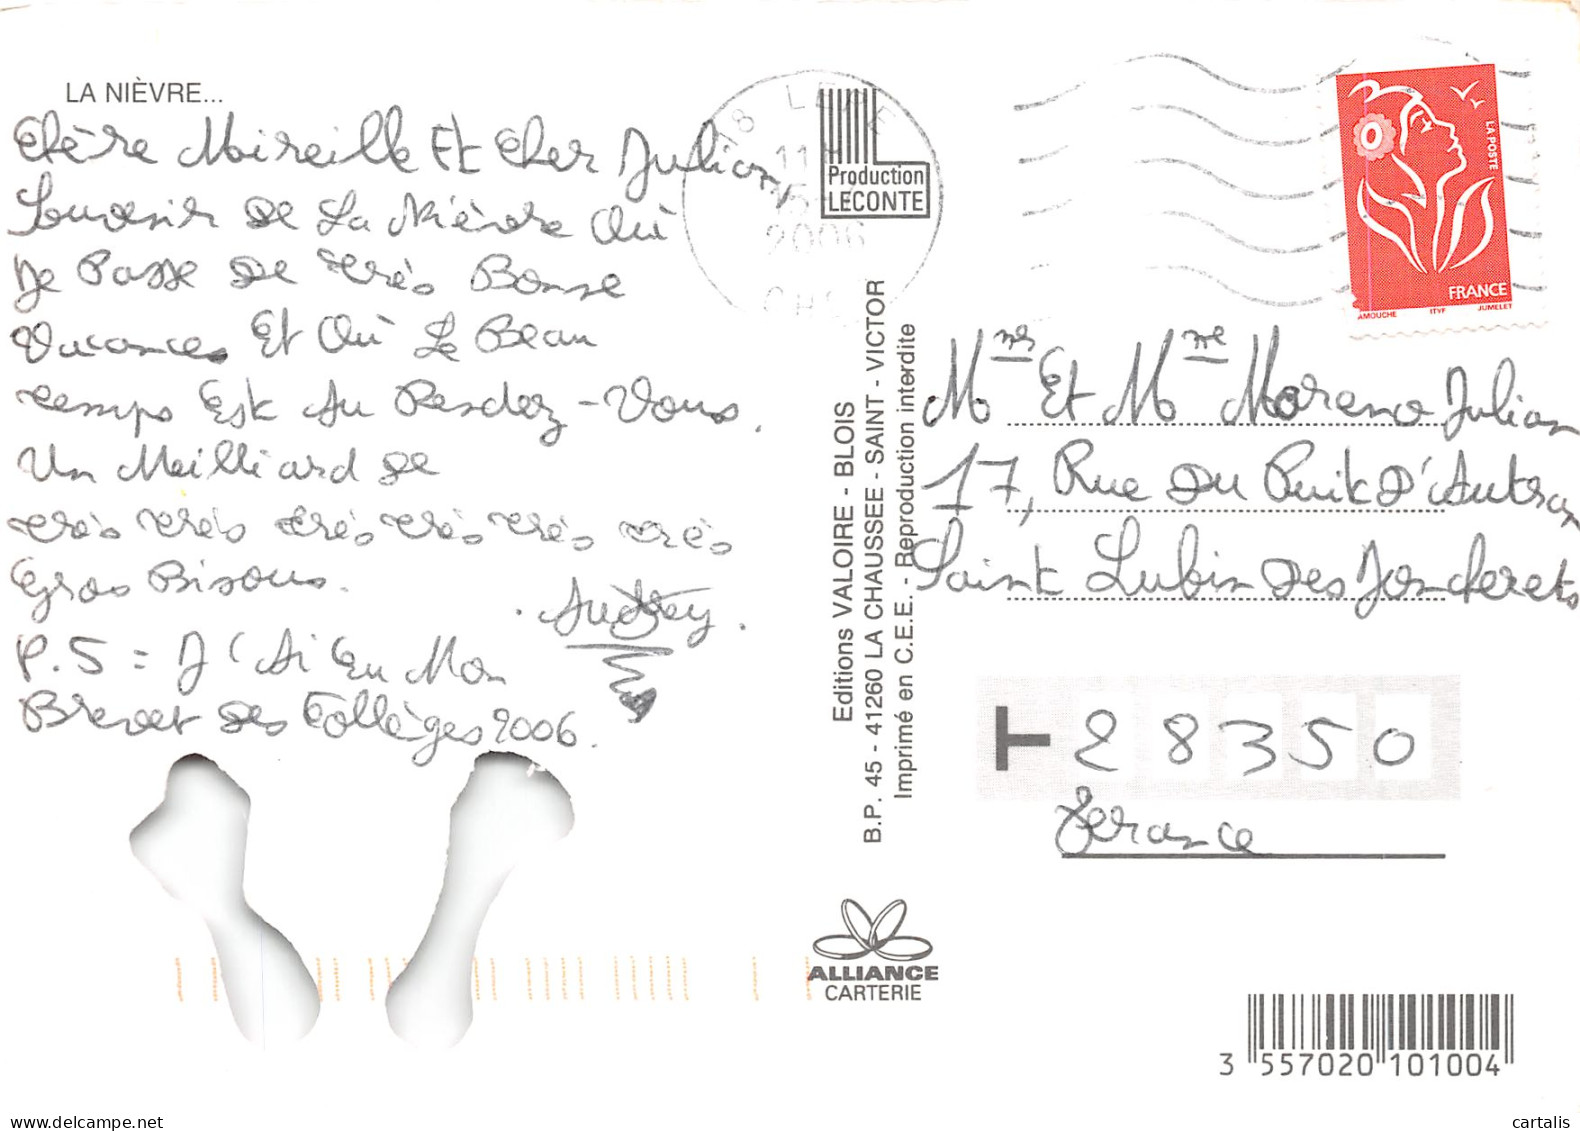 LA NIÈVRE...
Chère Mireille Et Cher Julian,
Souvenir De La Nièvre Où
Je Passe De très Bonne
Vacances Et Où Le Beau
temps Est Au Rendez-Vous.
Un Meilliard de
très très très très très très
Gros Bisous.
Audrey.
P.S = J'Ai Eu Mon
Brevet Des Collèges 2006.
18 LE
11
15
2006
CHE
Production
LECONTE
Editions VALOIRE - BLOIS
B.P. 45 - 41260 LA CHAUSSEE - SAINT - VICTOR
Imprimé en C.E.E. - Reproduction interdite
LA POSTE
FRANCE
AMOUCHE ITVF JUMELET
Mrs Et Mme Moreno Julian
17, Rue Du Puit D'Autran
Saint Lubin Des Joncherets
28350
France
ALLIANCE
CARTERIE
3 557020 101004
www.delcampe.net
cartalis